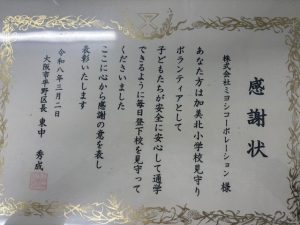 感謝状
株式会社ミヨシコーポレーション 様
あなた方は加美北小学校見守り
ボランティアとして
子どもたちが安全に安心して通学
できるように毎日登下校を見守って
くださいました
ここに心から感謝の意を表し
表彰いたします
令和八年三月二日
大阪市平野区長 東中 秀成